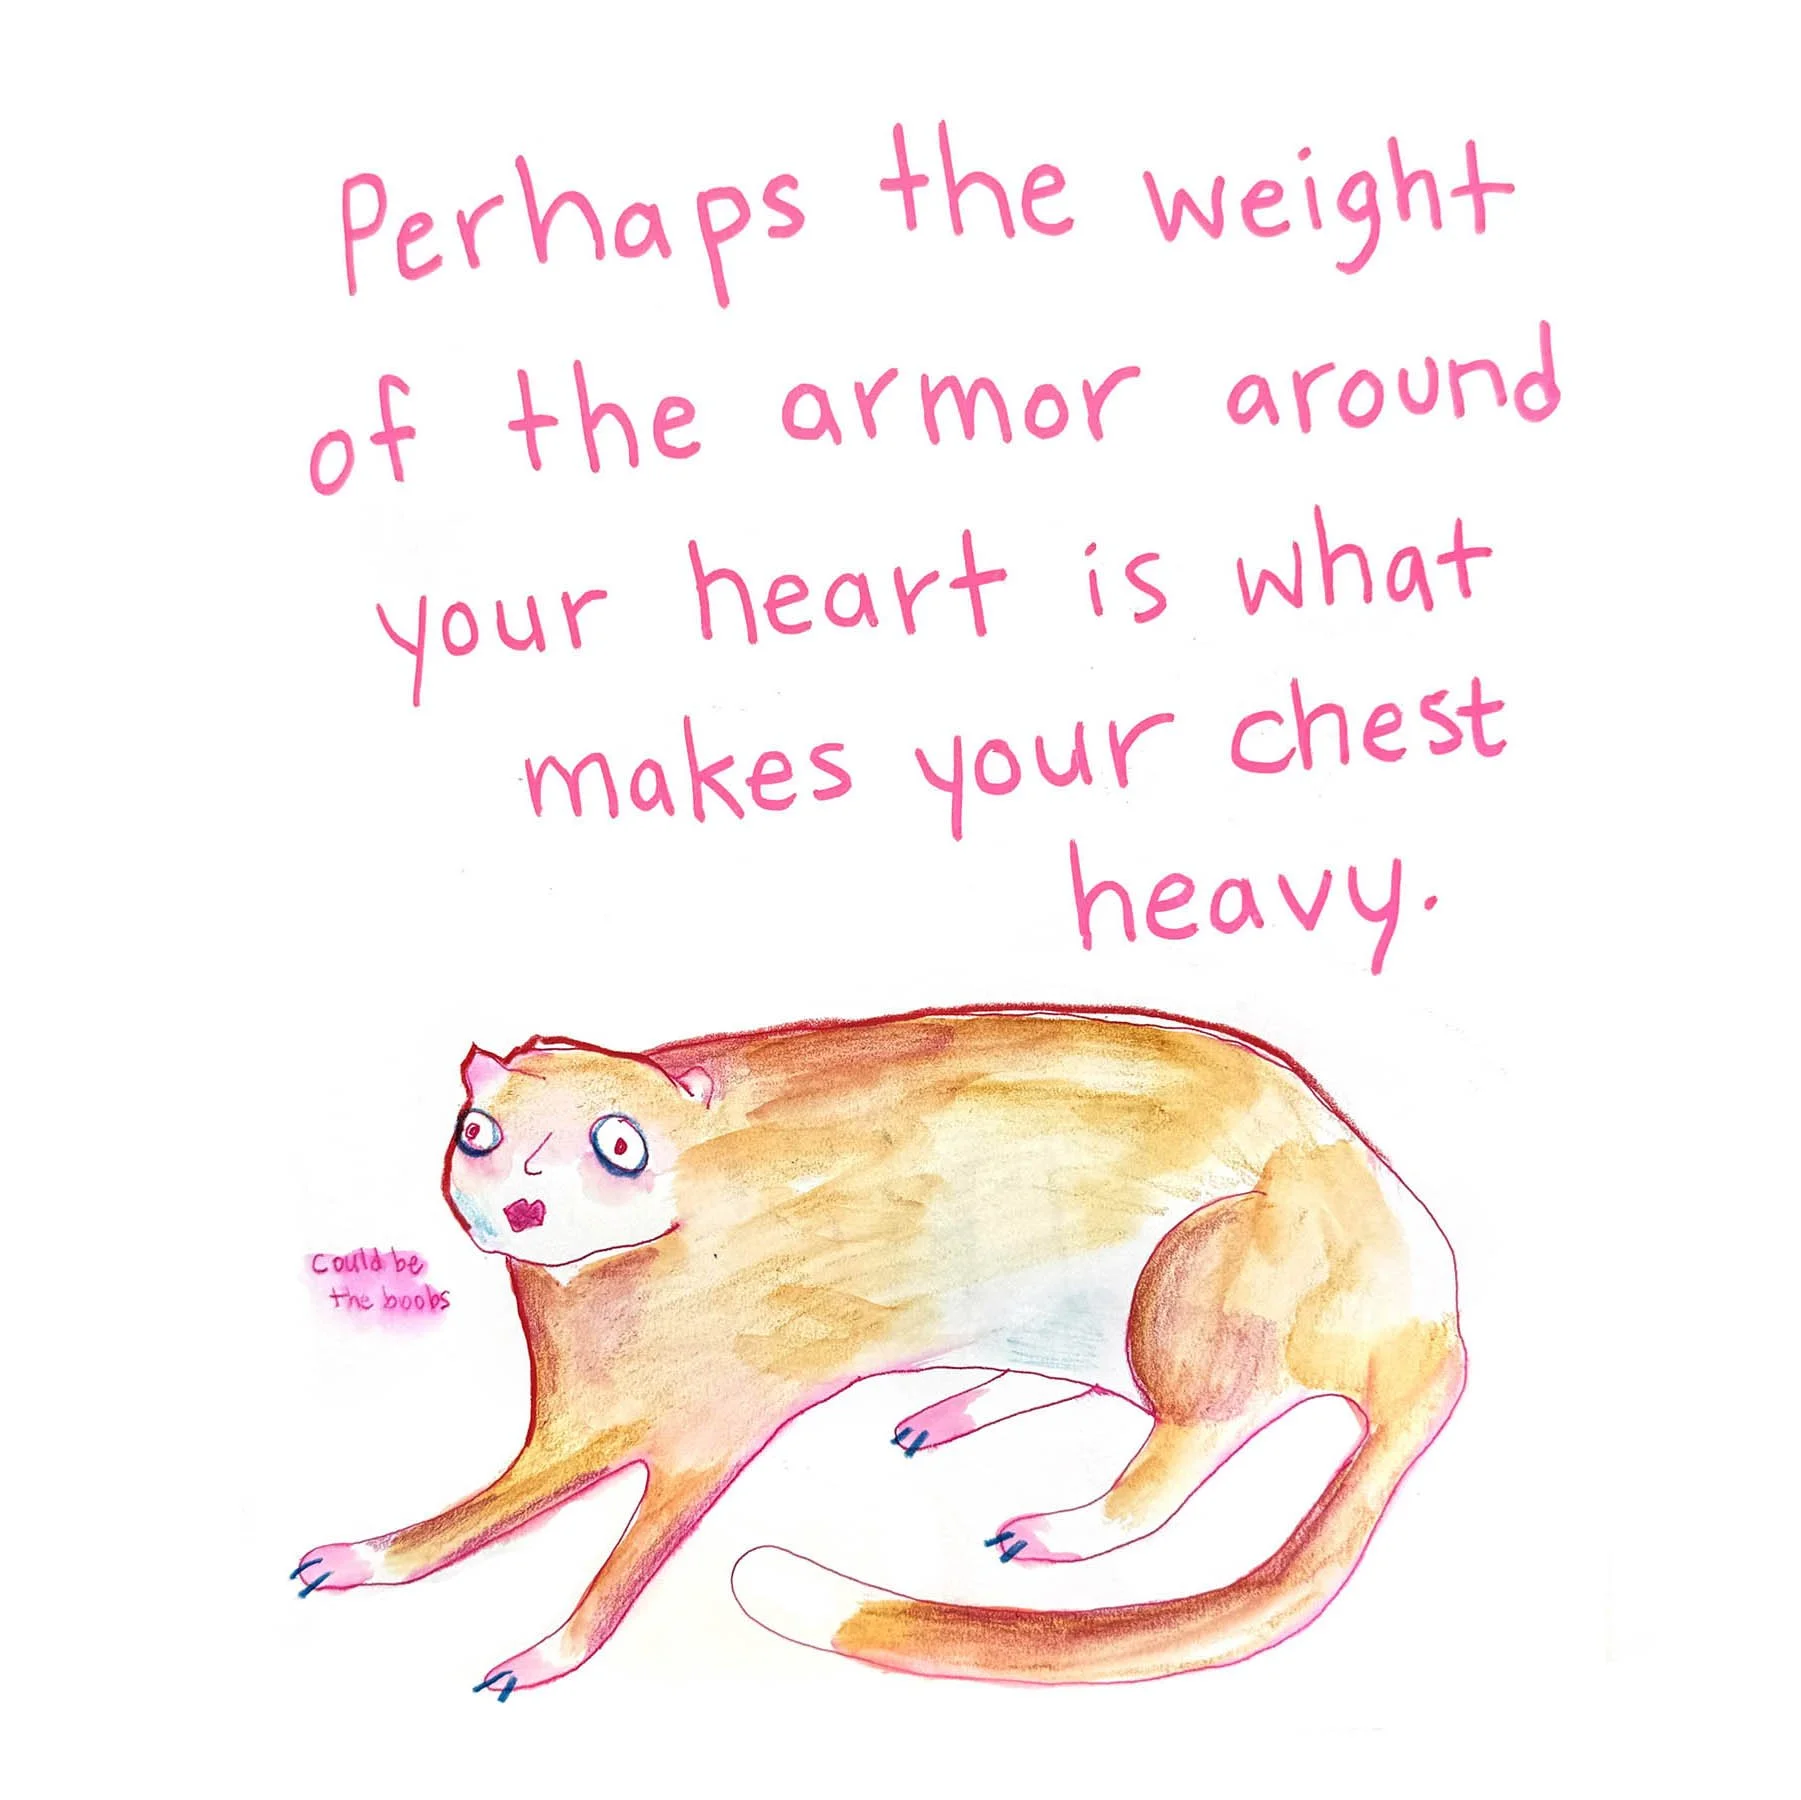 Perhaps the weight
of the armor around
your heart is what
makes your chest
heavy.
could be
the boobs